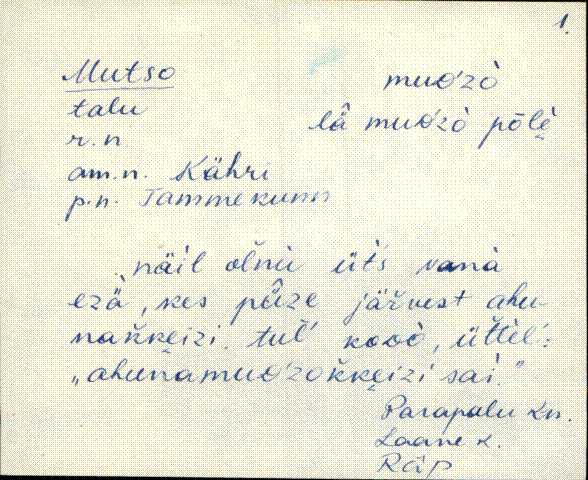 1.
Mutso
talu
r.n
am.n. Kähri
p.n. Tammekunn
muo'zò
lä̂ muo'zò pōlè̬
näil olnu üt's vanà
ezä̀, kes pâ̭ze järvest ahu-
nakkeizi. tul' kodò, üttèl':
"ahunamuo'zokkeizi sai."
Parapalu kn.
Laane k.
Räp